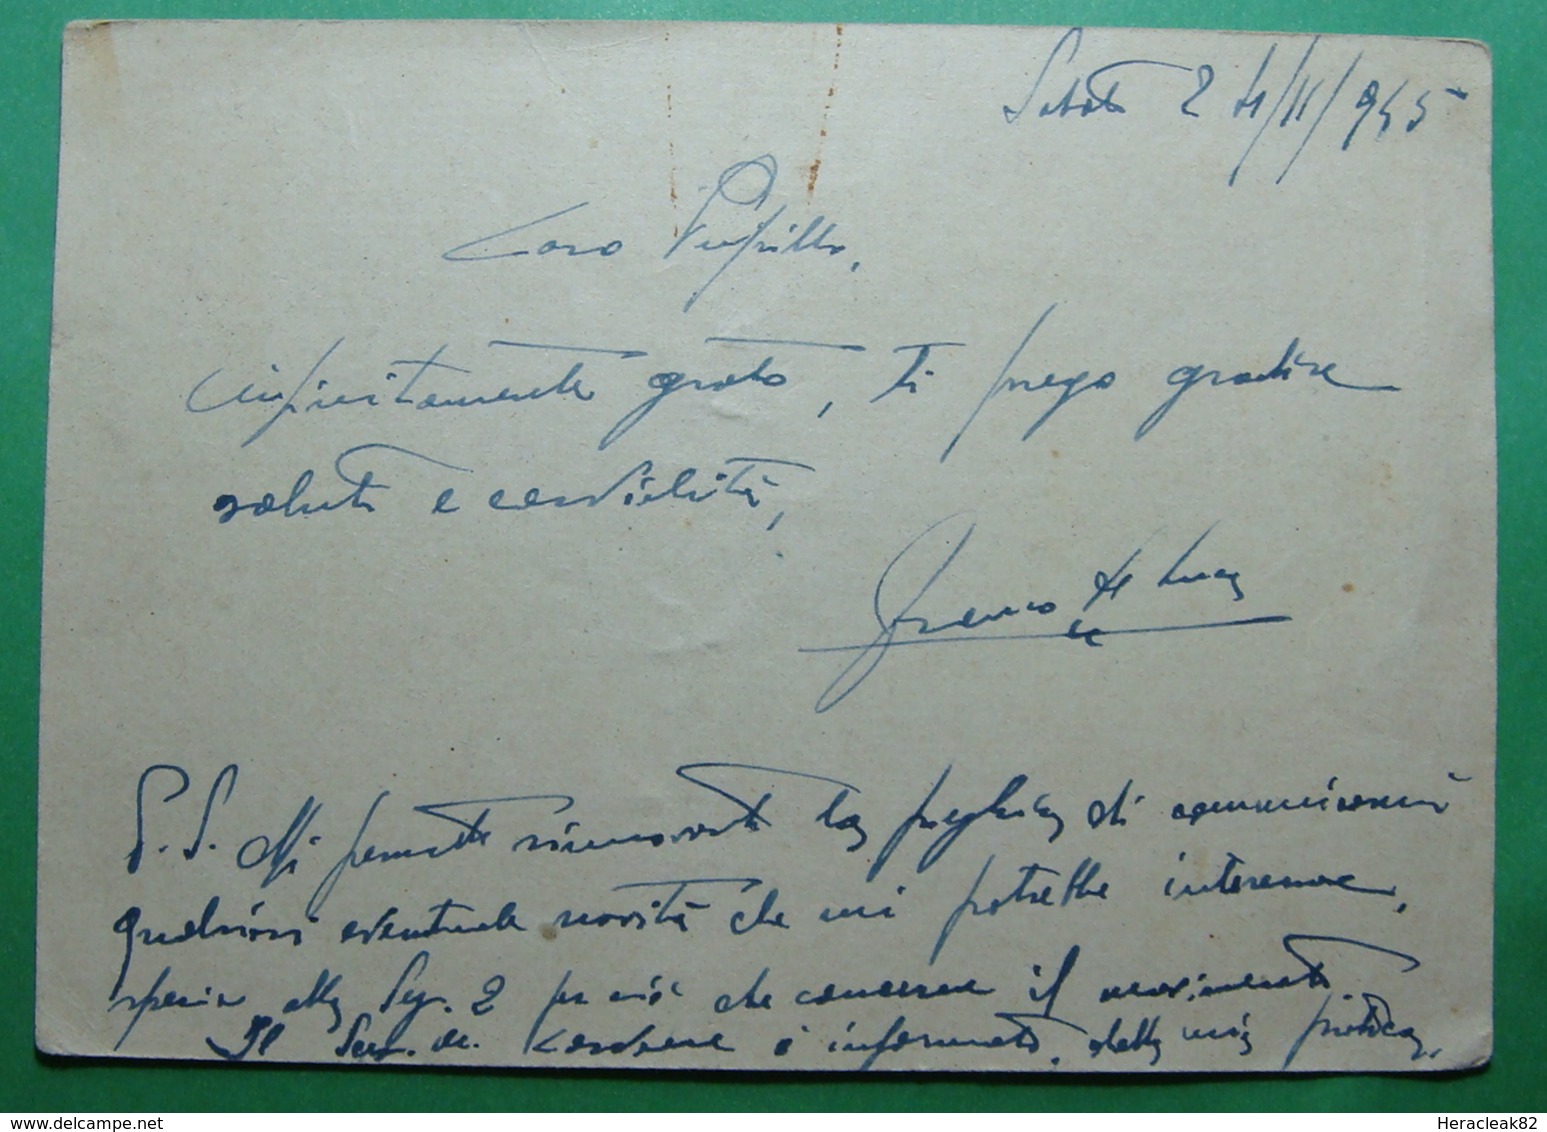 Sabato 24/11/945
Caro Pupillo,
infinitamente grato, ti prego gradire
saluti e cordialità,
Franco de Luca
P.S. Mi permetto rinnovarti la preghiera di comunicarmi
qualsiasi eventuale novità che mi potrebbe interessare,
specie alla Seg. 2 per ciò che concerne il movimento
Il Serg. è informato della mia pratica.
Heracleak82